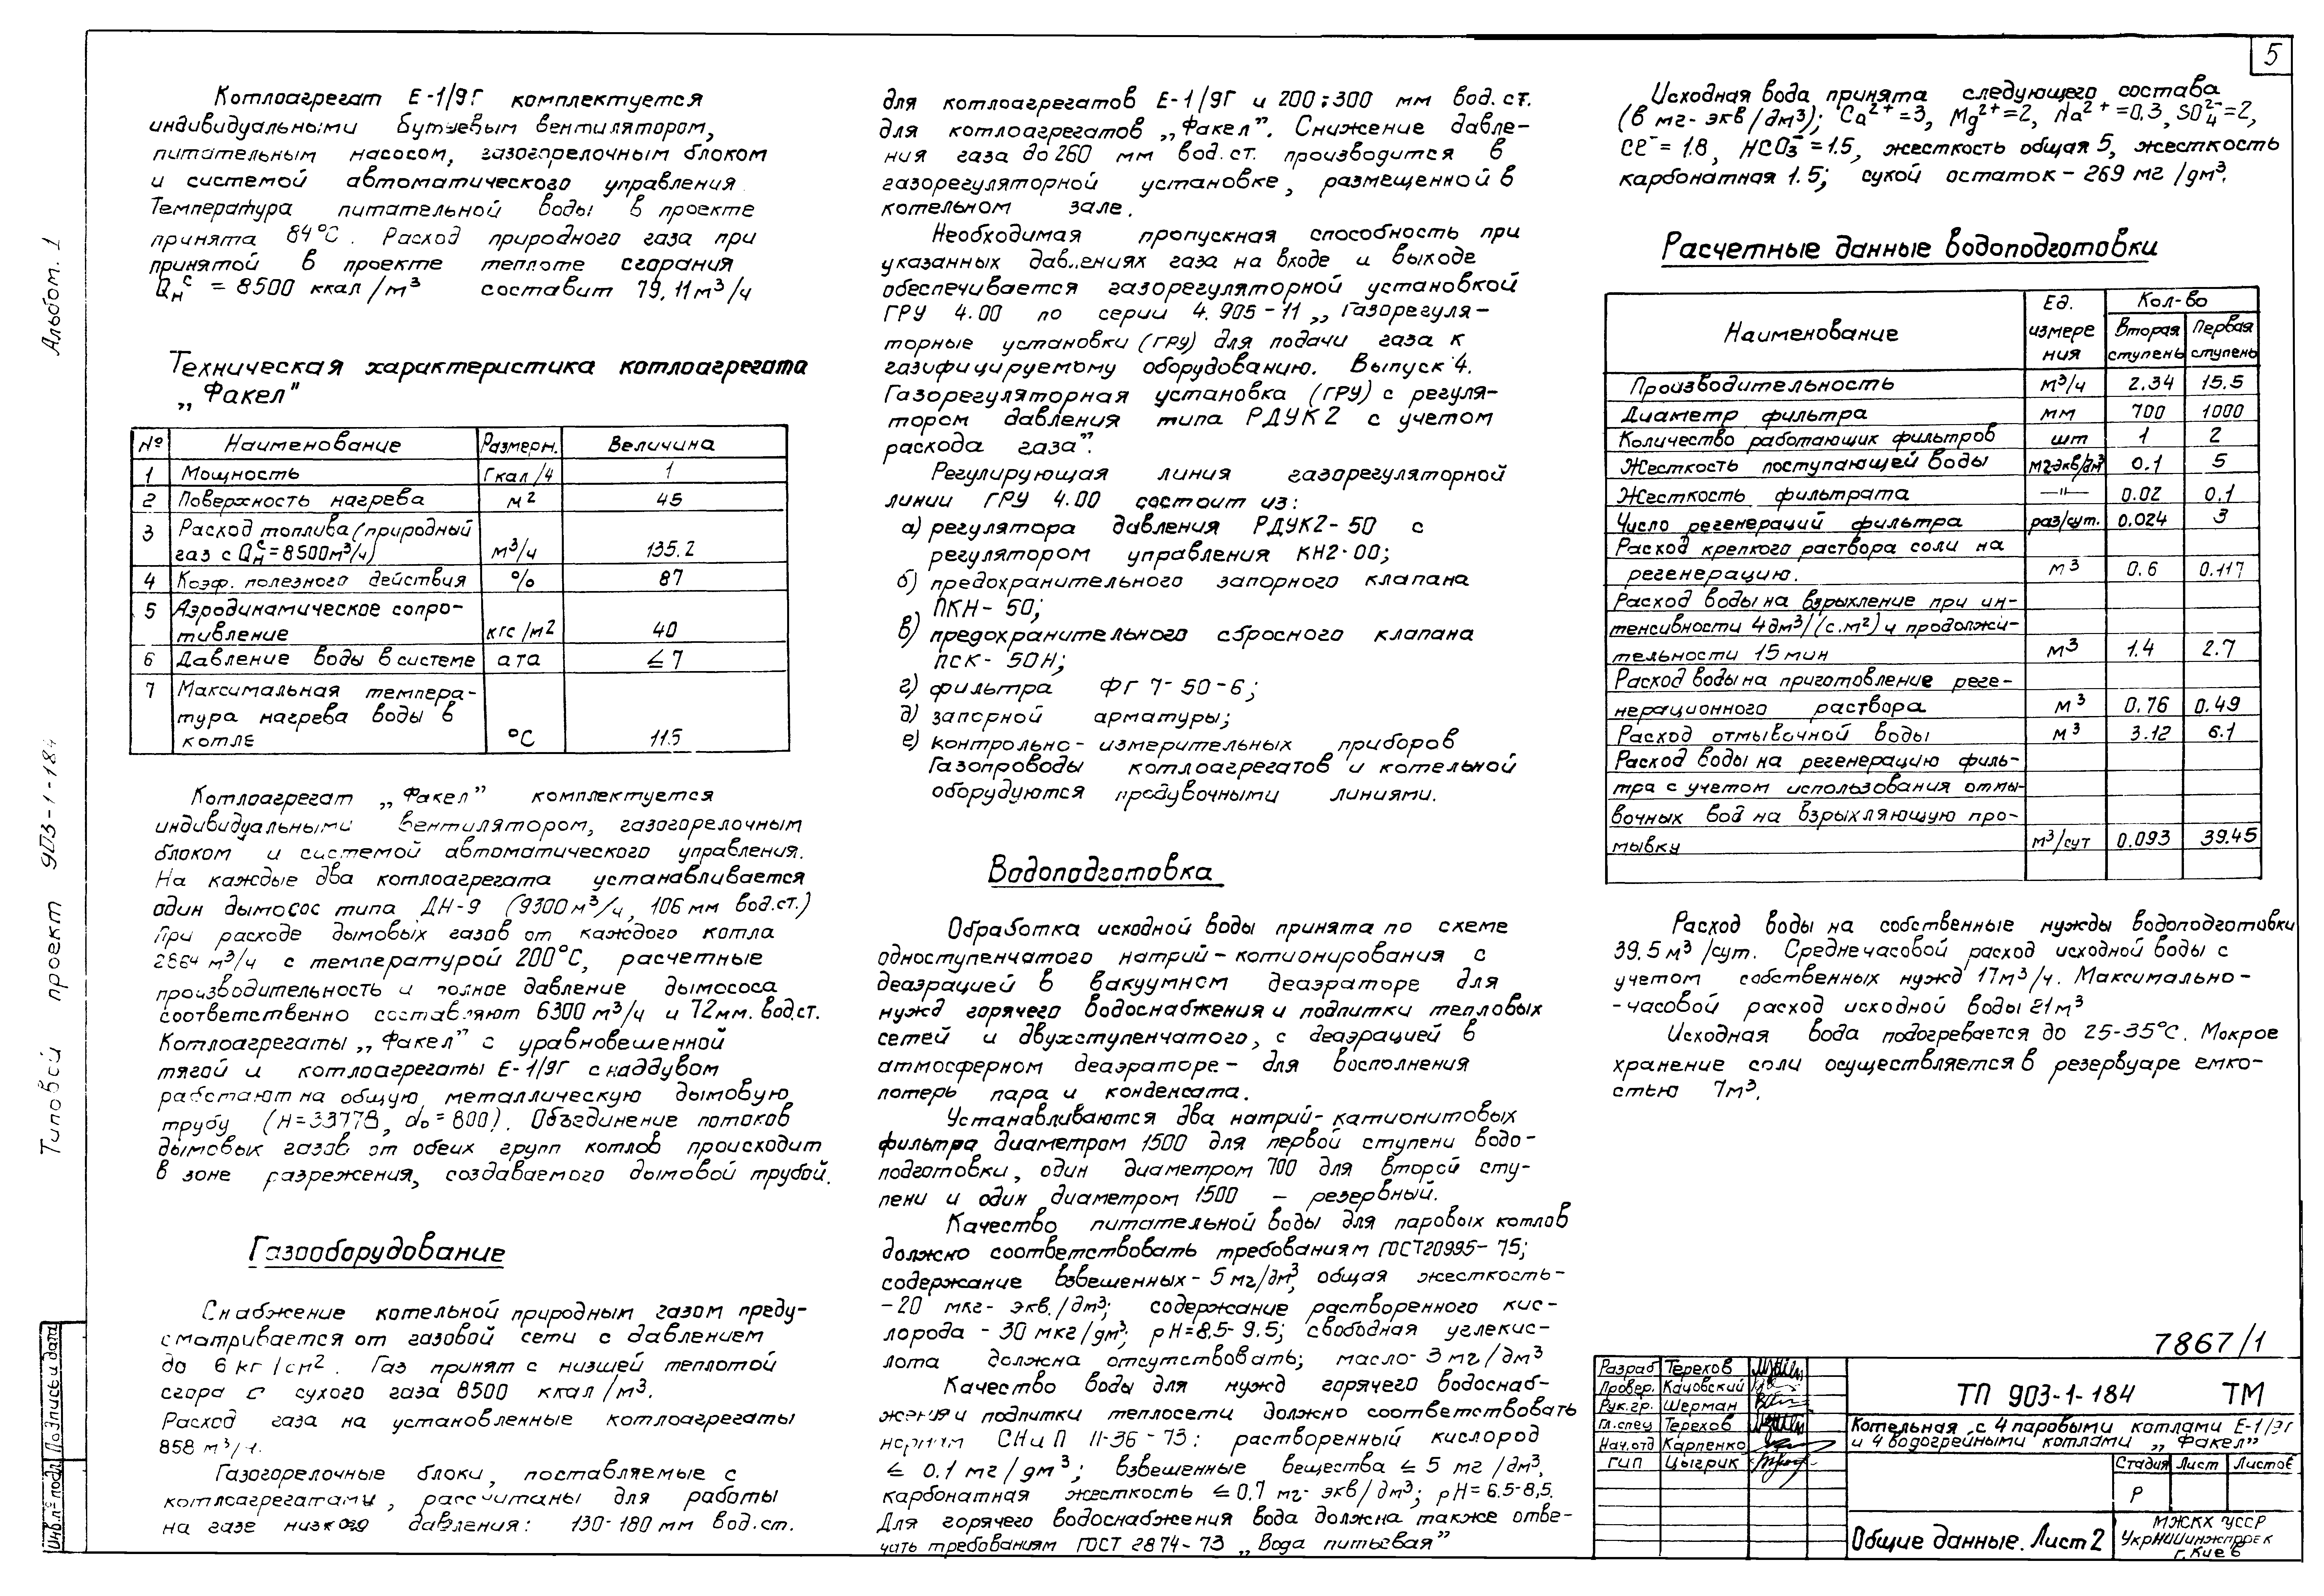 5
Альбом. 1
Типовой проект 903-1-184
Котлоагрегат Е-1/9Г комплектуется
индивидуальными бутуевым вентилятором,
питательным насосом, газогорелочным блоком
и системой автоматического управления.
Температура питательной воды в проекте
принята 84°С. Расход природного газа при
принятой в проекте теплоте сгорания
Qнс = 8500 ккал/м³ составит 79,11м³/ч
Техническая характеристика котлоагрегата
„Факел"
№ Наименование Размерн. Величина
1 Мощность Гкал/ч 1
2 Поверхность нагрева м² 45
3 Расход топлива (природный
газ с Qнс=8500м³/ч) м³/ч 135.2
4 Коэф. полезного действия % 87
5 Аэродинамическое сопро-
тивление кгс/м2 40
6 Давление воды в системе ата ≤7
7 Максимальная темпера-
тура нагрева воды в
котле °С 115
Котлоагрегат „Факел” комплектуется
индивидуальными вентилятором, газогорелочным
блоком и системой автоматического управления.
На каждые два котлоагрегата устанавливается
один дымосос типа ДН-9 (9300м³/ч, 106мм вод.ст.)
При расходе дымовых газов от каждого котла
2864 м³/ч с температурой 200°С, расчетные
производительность и полное давление дымососа
соответственно составляют 6300 м³/ч и 72мм. вод.ст.
Котлоагрегаты „Факел” с уравновешенной
тягой и котлоагрегаты Е-1/9Г с наддувом
работают на общую металлическую дымовую
трубу (Н=33778, d₀=800). Объединение потоков
дымовых газов от обеих групп котлов происходит
в зоне разрежения, создаваемого дымовой трубой.
Газооборудование
Снабжение котельной природным газом преду-
сматривается от газовой сети с давлением
до 6 кг/см². Газ принят с низшей теплотой
сгора с сухого газа 8500 ккал/м³.
Расход газа на установленные котлоагрегаты
858 м³/ч.
Газогорелочные блоки, поставляемые с
котлоагрегатами, рассчитаны для работы
на газе низкого давления: 130-180 мм вод.ст.
для котлоагрегатов Е-1/9Г и 200÷300 мм вод.ст.
для котлоагрегатов „Факел”. Снижение давле-
ния газа до 260 мм вод.ст. производится в
газорегуляторной установке, размещенной в
котельном зале.
Необходимая пропускная способность при
указанных давлениях газа на входе и выходе
обеспечивается газорегуляторной установкой
ГРУ 4.00 по серии 4.905-11 „Газорегуля-
торные установки (ГРУ) для подачи газа к
газифицируемому оборудованию. Выпуск 4.
Газорегуляторная установка (ГРУ) с регуля-
тором давления типа РДУК2 с учетом
расхода газа”.
Регулирующая линия газорегуляторной
линии ГРУ 4.00 состоит из:
а) регулятора давления РДУК2-50 с
регулятором управления КН2-00;
б) предохранительного запорного клапана
ПКН-50;
в) предохранительного сбросного клапана
ПСК-50Н;
г) фильтра ФГ 7-50-6;
д) запорной арматуры;
е) контрольно-измерительных приборов
Газопроводы котлоагрегатов и котельной
оборудуются продувочными линиями.
Водоподготовка
Обработка исходной воды принята по схеме
одноступенчатого натрий-котионирования с
деаэрацией в вакуумном деаэраторе для
нужд горячего водоснабжения и подпитки тепловых
сетей и двухступенчатого, с деаэрацией в
атмосферном деаэраторе - для восполнения
потерь пара и конденсата.
Устанавливаются два натрий-катионитовых
фильтра диаметром 1500 для первой ступени водо-
подготовки, один диаметром 700 для второй сту-
пени и один диаметром 1500 - резервный.
Качество питательной воды для паровых котлов
должно соответствовать требованиям ГОСТ20995-75;
содержание взвешенных - 5 мг/дм³, общая жесткость-
-20 мкг-экв./дм³; содержание растворенного кис-
лорода - 30 мкг/дм³; рН=8.5-9.5; свободная углекис-
лота должна отсутствовать; масло-3мг/дм³
Качество воды для нужд горячего водоснаб-
жения и подпитки теплосети должно соответствовать
нормам СНиП II-36-73: растворенный кислород
≤ 0.1 мг/дм³; взвешенные вещества ≤ 5 мг/дм³,
карбонатная жесткость ≤0,7 мг-экв/дм³; рН=6.5-8,5.
Для горячего водоснабжения вода должна также отве-
чать требованиям ГОСТ 2874-73 „Вода питьевая”
Исходная вода принята следующего состава
(в мг-экв/дм³); Ca²⁺=3, Mg²⁺=2, Na²⁺=0.3, SO₄²⁻=2,
Cl⁻=1.8, HCO₃⁻=1.5, жесткость общая 5, жесткость
карбонатная 1.5; сухой остаток - 269 мг/дм³.
Расчетные данные водоподготовки
Наименование Ед. измере ния Кол-во
Вторая ступень Первая ступень
Производительность м³/ч 2.34 15.5
Диаметр фильтра мм 700 1000
Количество работающих фильтров шт 1 2
Жесткость поступающей воды мг-экв/дм³ 0.1 5
Жесткость фильтрата —"— 0.02 0.1
Число регенераций фильтра раз/сут. 0.024 3
Расход крепкого раствора соли на
регенерацию. м³ 0.6 0.117
Расход воды на взрыхление при ин-
тенсивности 4дм³/(с.м²) и продолжи-
тельности 15мин м³ 1.4 2.7
Расход воды на приготовление реге-
нерационного раствора м³ 0.76 0.49
Расход отмывочной воды м³ 3.12 6.1
Расход воды на регенерацию филь-
тра с учетом использования отмы-
вочных вод на взрыхляющую про-
мывку м³/сут 0.093 39.45
Расход воды на собственные нужды водоподготовки
39.5м³/сут. Среднечасовой расход исходной воды с
учетом собственных нужд 17м³/ч. Максимально-
-часовой расход исходной воды 21м³
Исходная вода подогревается до 25-35°С. Мокрое
хранение соли осуществляется в резервуаре емко-
стью 7м³.
7867/1
Разраб Терехов
Провер. Качовский
Рук.гр. Шерман
Гл.спец Терехов
Нач.отд Карпенко
ГИП Цыгрик
ТП 903-1-184 ТМ
Котельная с 4 паровыми котлами Е-1/9Г
и 4 водогрейными котлами „Факел”
Стадия Лист Листов
Р
Общие данные. Лист 2
МЖКХ УССР
УкрНИИинжпроек
г. Киев
Инв.№ подл Подпись и дата